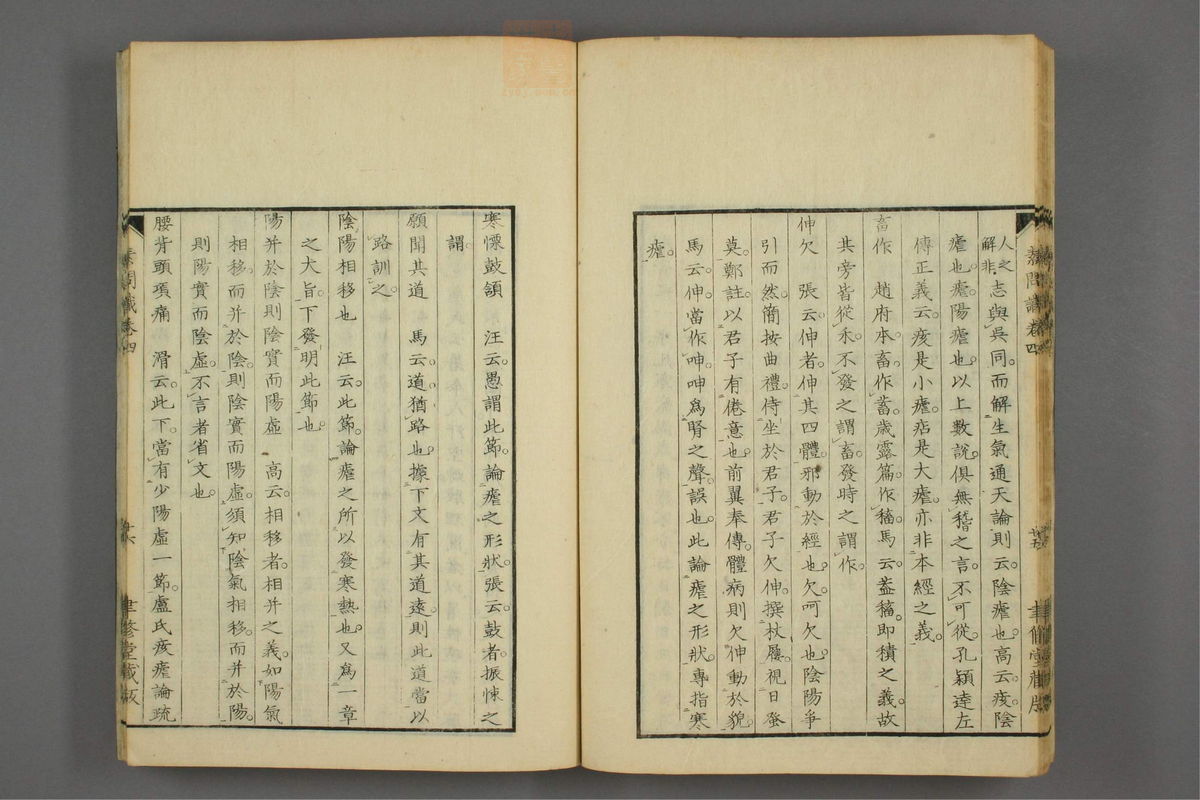 人之志與吳同而解生氣通天論則云陰瘧也高云痎陰
解非
瘧也瘧陽瘧也以上數說俱無稽之言不可從孔穎達左
傳正義云痎是小瘧痁是大瘧亦非本經之義
畜作　趙府本畜作蓄歲露篇作稸馬云蓋稸即積之義故
其旁皆從禾不發之謂畜發時之謂作
伸欠　張云伸者伸其四體邪動於經也欠呵欠也陰陽爭
引而然簡按曲禮侍坐於君子君子欠伸撰杖屨視日蚤
莫鄭註以君子有倦意也前翼奉傳體病則欠伸動於貌
馬云伸當作呻呻爲腎之聲誤也此論瘧之形狀專指寒
瘧
素問識卷四
聿修堂藏版
寒慄鼓頷　汪云愚謂此節論瘧之形狀張云鼓者振悚之
謂
願聞其道　馬云道猶路也據下文有其道遠則此道當以
路訓之
陰陽相移也　汪云此節論瘧之所以發寒熱也又爲一章
之大旨下發明此節也
陽并於陰則陰實而陽虛　高云相移者相并之義如陽氣
相移而并於陰則陰實而陽虛須知陰氣相移而并於陽
則陽實而陰虛不言者省文也
腰背頭項痛　滑云此下當有少陽虛一節盧氏痎瘧論疏
素問識卷四
廿六
聿修堂藏版